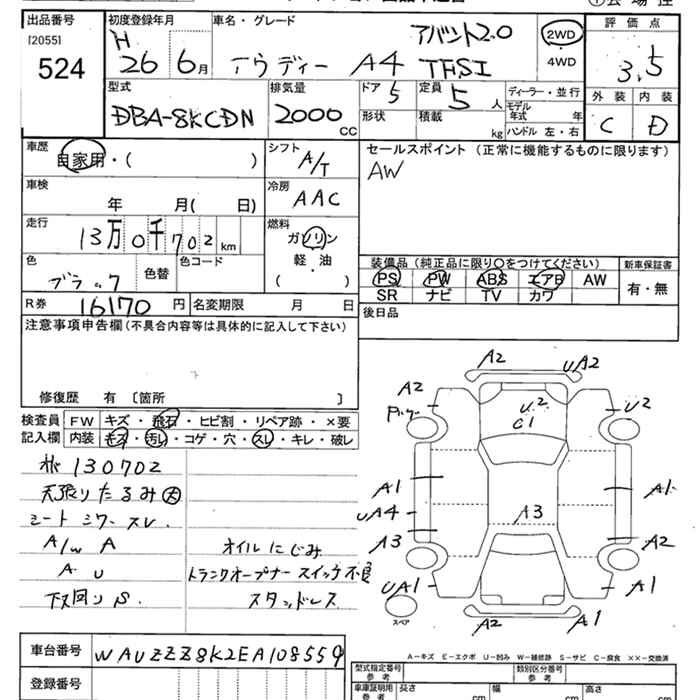 出品番号
[2055]
524
初度登録年月
H 26 6月
車名・グレード
アバント2.0
アウディー A4 TFSI
2WD
・
4WD
評価点
3.5
外装 内装
C D
型式
DBA-8KCDN
排気量
2000 CC
ドア 5
形状
定員 5 人
積載 kg
ディーラー・並行
モデル年式 年
ハンドル 左・右
車歴
自家用・( )
シフト
A/T
セールスポイント (正常に機能するものに限ります)
AW
車検
年 月( 日)
冷房
AAC
走行
13万0千702 km
燃料
ガソリン
軽・油
( )
色
ブラック
色替
色コード
装備品 (純正品に限り○をつけてください)
PS PW ABS エアB AW
SR ナビ TV カワ
新車保証書
有・無
R券 16170 円
名変期限 月 日
後日品
注意事項申告欄 (不具合内容等は具体的に記入して下さい)
修復歴 有 〔箇所 〕
検査員
記入欄
FW キズ・飛石・ヒビ割・リペア跡・×要
内装 キズ・汚レ・コゲ・穴・スレ・キレ・破レ
130702
天張りたるみ大
シート シワ スレ.
A/W A
A U
下回り S.
オイルにじみ
トランクオープナー スイッチ不良
スタッドレス
A2
UA2
A2
U2
C1
U2
A1
UA4
A3
A3
A1
A2
UA1
A1
A2
A1
スペア
A-キズ E-エクボ U-凹み W-補修跡 S-サビ C-腐食 ××-交換済
車台番号
WAUZZZ8K2EA108559
登録番号
型式指定番号
類別区分番号
車庫証明用
参考
長さ cm
幅 cm
高さ cm